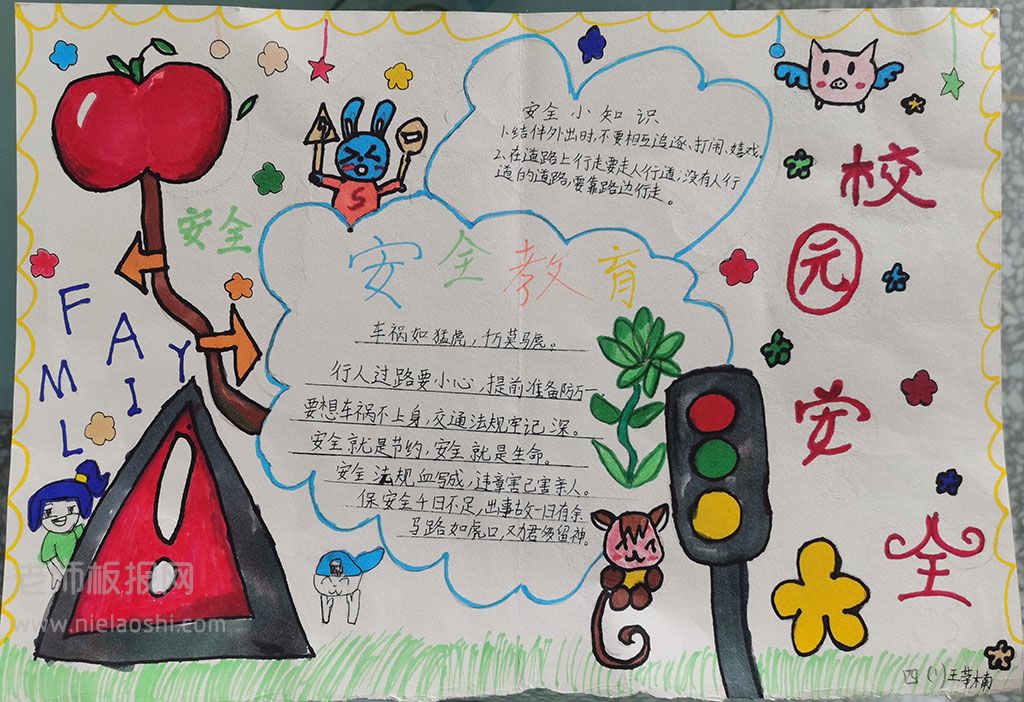 安全小知识
1、结伴外出时,不要相互追逐、打闹、嬉戏.
2、在道路上行走要走人行道;没有人行
道的道路,要靠路边行走。
校园安全
安全
安全教育
车祸如猛虎,千万莫马虎。
行人过路要小心,提前准备防万一
要想车祸不上身,交通法规牢记深。
安全就是节约,安全就是生命。
安全法规血写成,违章害己害亲人。
保安全千日不足,出事故一日有余
马路如虎口,劝君须留神。
FAMILY
S
老师板报网
www.nielaoshi.com
四(1)王